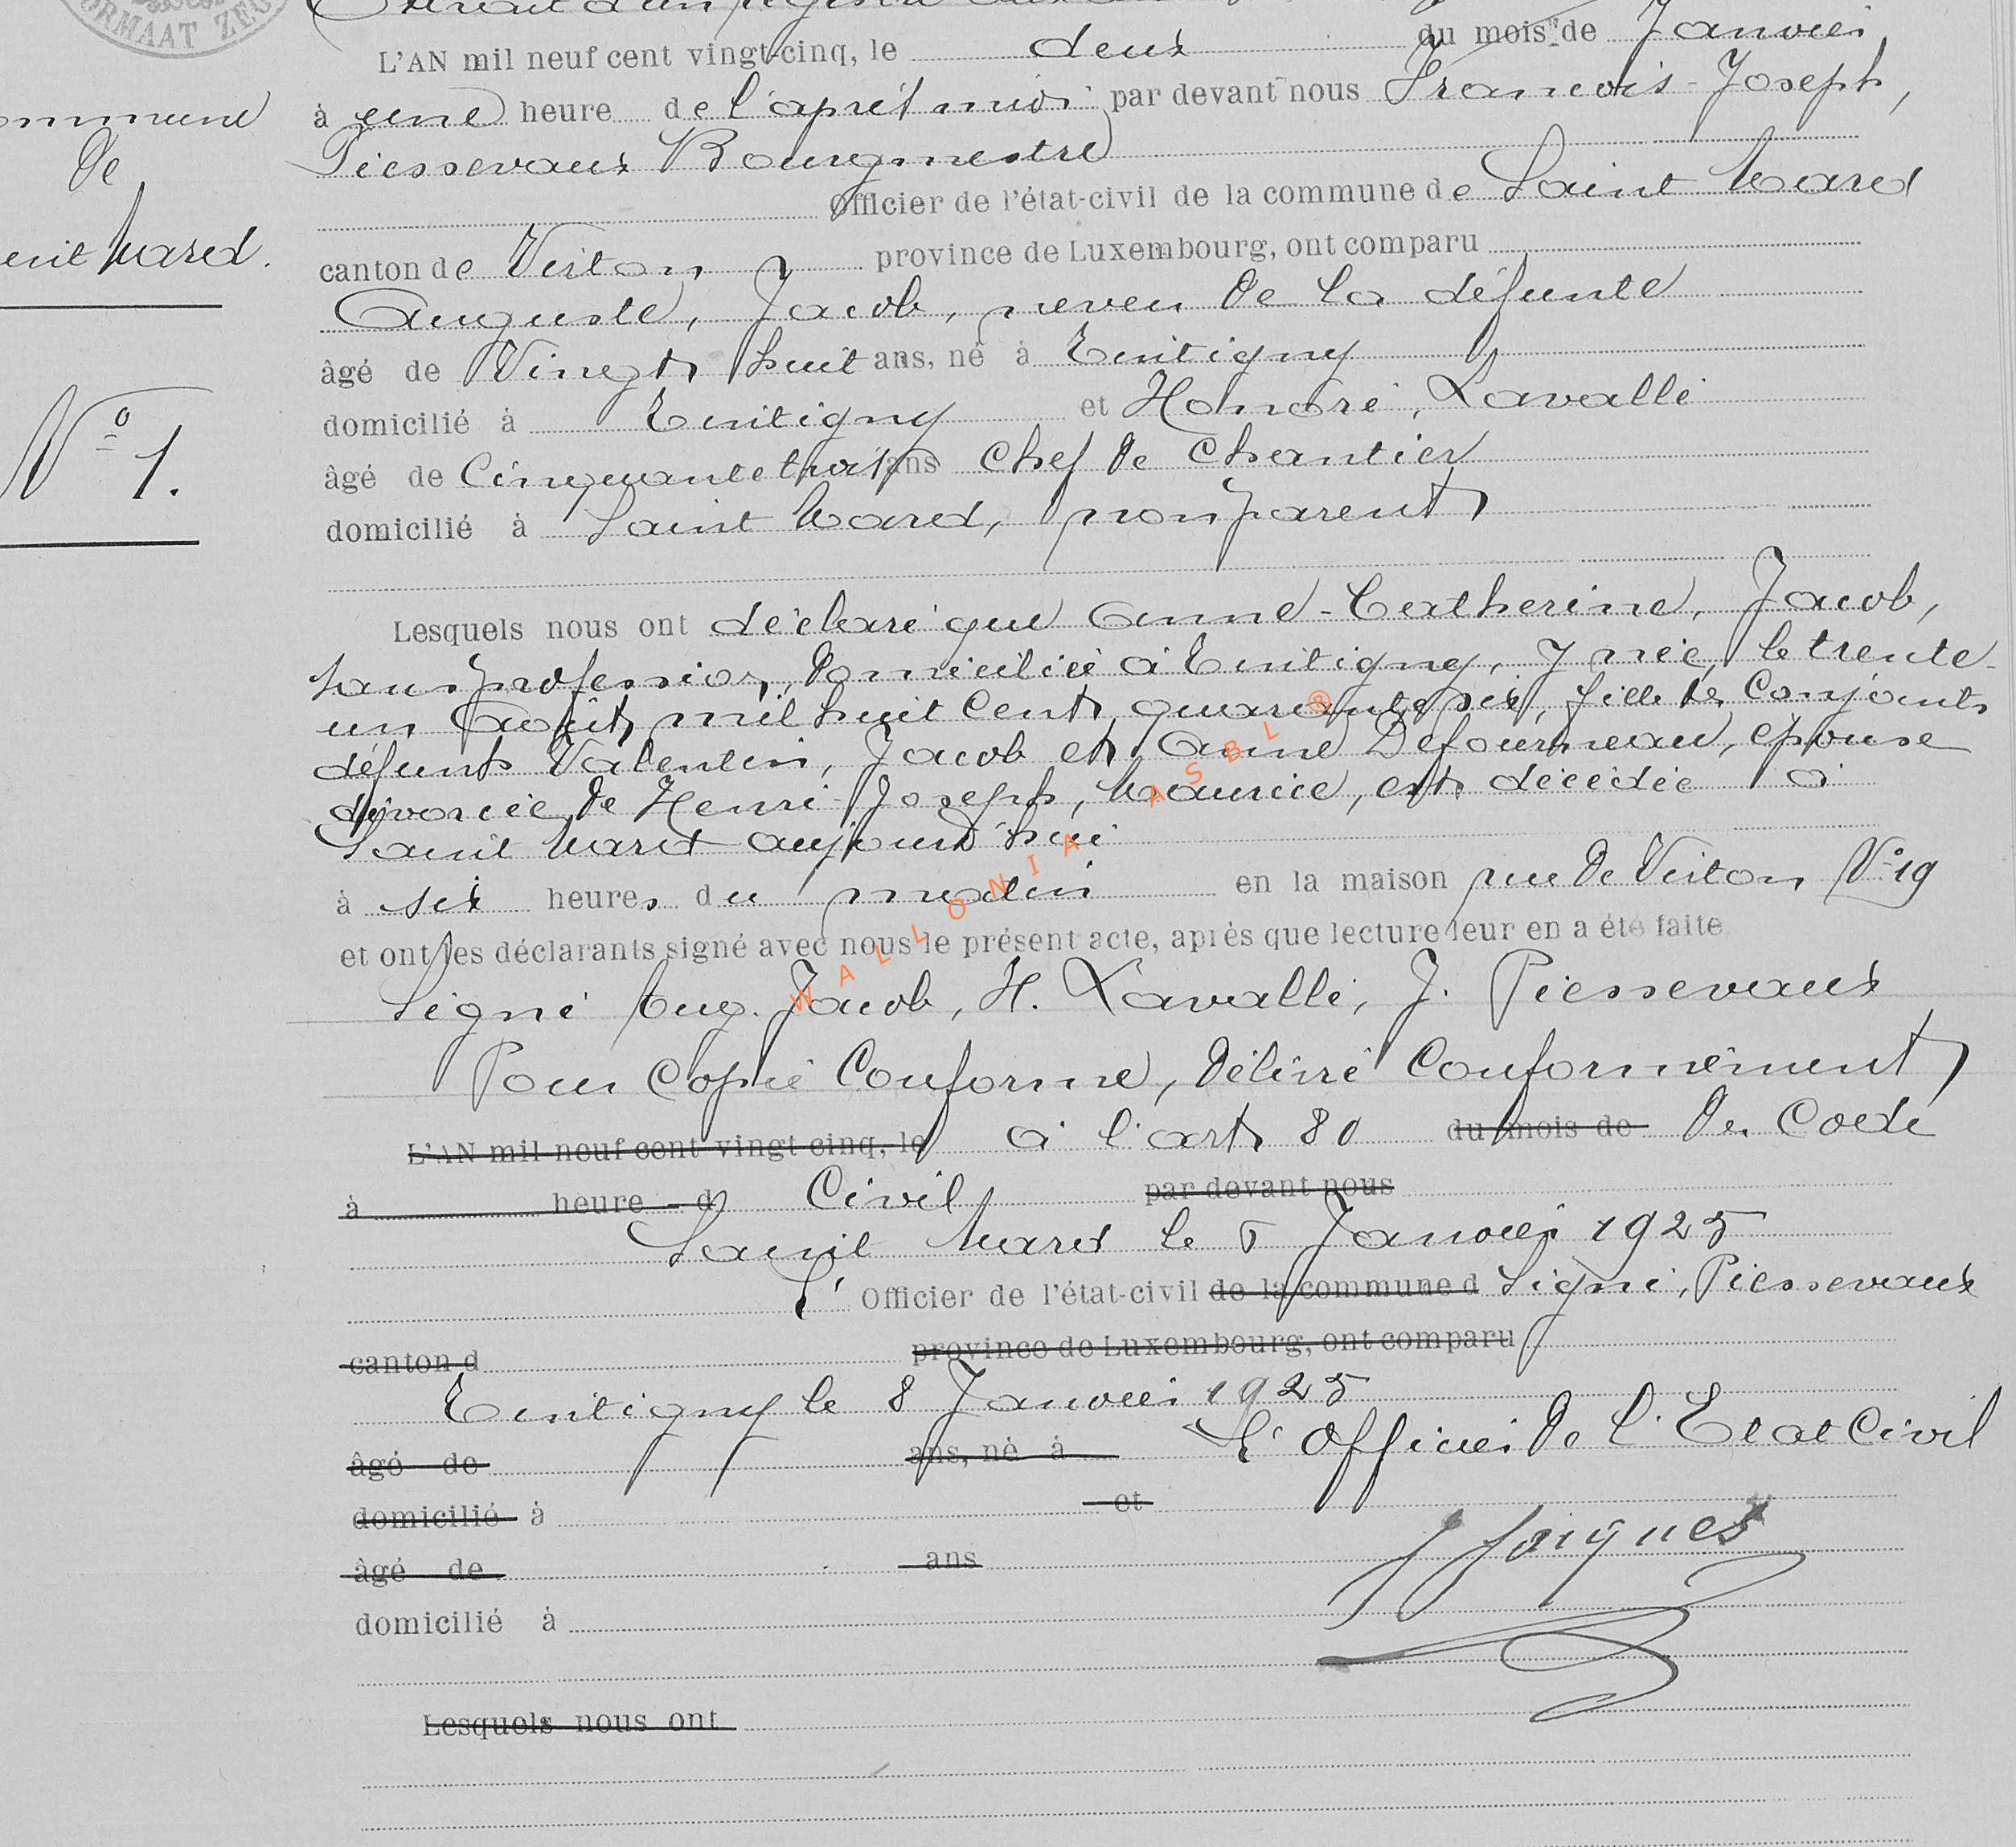 FORMAAT ZE
L'AN mil neuf cent vingt-cinq, le deux du mois de Janvier
à une heure de l'après midi par devant nous François-Joseph,
Piessevaux Bourgmestre
Officier de l'état-civil de la commune de Saint Mard
canton de Virton province de Luxembourg, ont comparu
Auguste, Jacob, neveu de la défunte
âgé de Vingt huit ans, né à Tintigny
domicilié à Tintigny et Honoré, Lavallé
âgé de Cinquante trois ans Chef de Chantier
domicilié à Saint Mard, non parent
Lesquels nous ont déclaré que Anne-Catherine, Jacob,
sans profession, domiciliée à Tintigny, y née, le trente-
un Août mil huit cent quarante six, fille des Conjoints
défunts Valentin, Jacob et Anne Defourneau, épouse
divorcée de Henri-Joseph, Maurice, est décédée à
Saint Mard aujourd'hui
à six heures du matin en la maison rue de Virton N° 19
et ont les déclarants signé avec nous le présent acte, après que lecture leur en a été faite
Signé Aug. Jacob, H. Lavallé, J. Piessevaux
Pour Copie Conforme, délivré Conformément
L'AN mil neuf cent vingt-cinq, le à l'art 80 du mois de de Code
à heure d Civil par devant nous
Saint Mard le 5 Janvier 1925
L' Officier de l'état-civil de la commune d Signé, Piessevaux
canton d province de Luxembourg, ont comparu
Tintigny le 8 Janvier 1925
âgé de ans, né à L'Officier de l'Etat Civil
domicilié à et
âgé de ans
domicilié à
Lesquels nous ont
de
Mard.
N° 1.
WALLONIA ASBL ®